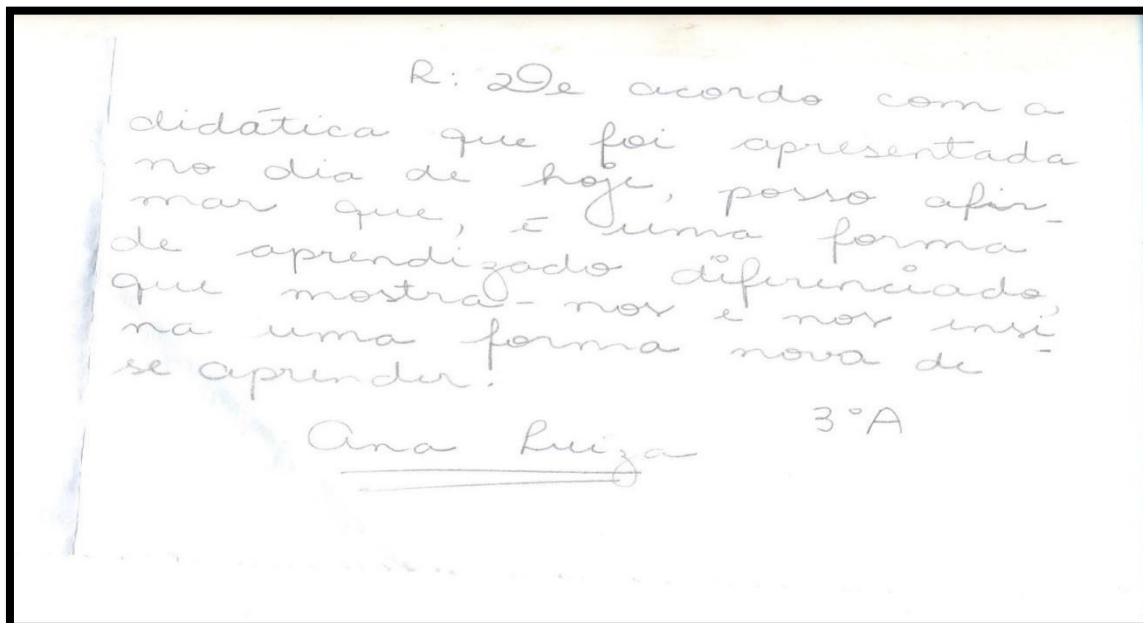 R: De acordo com a
didática que foi apresentada
no dia de hoje, posso afir-
mar que, é uma forma
de aprendizado diferenciado,
que mostra-nos e nos ensi-
na uma forma nova de
se aprender!
Ana Luiza 3ºA